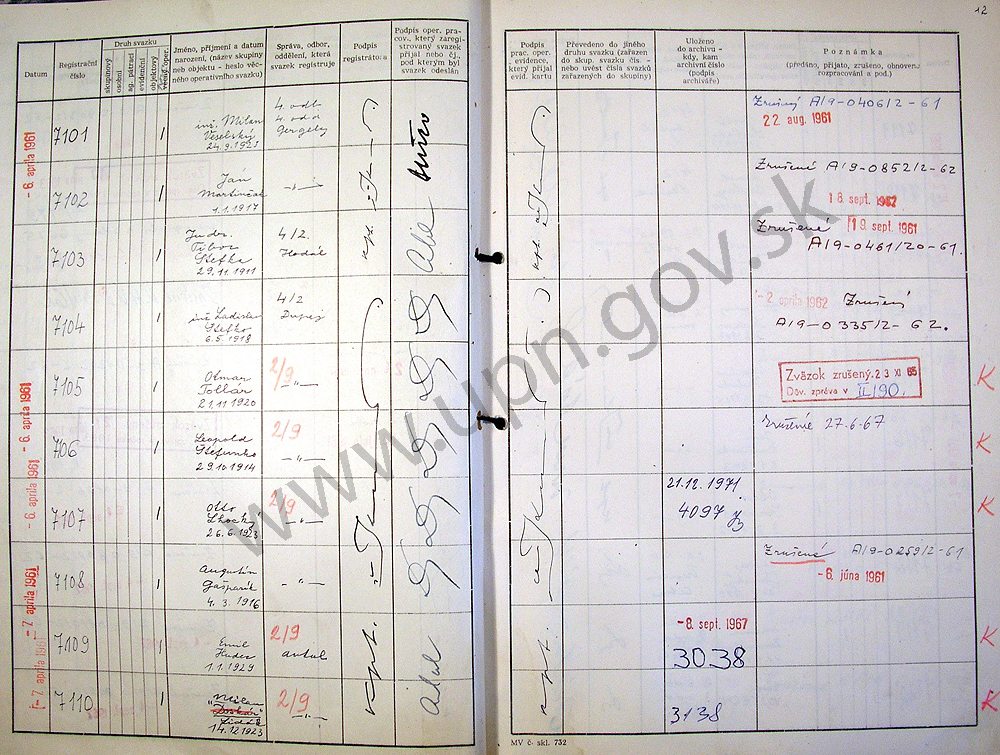 12
Datum
Registrační
číslo
Druh svazku
skupinový
osobní
ag. pátrací
evidenční
objektový
Jméno, příjmení a datum
narození, (název skupiny
neb objektu - heslo věc-
ného operativního svazku)
Správa, odbor,
oddělení, která
svazek registruje
Podpis
registrátora:
Podpis oper. pra-
cov., který zaregi-
strovaný svazek
přijal nebo čj.,
pod kterým byl
svazek odeslán
Podpis
prac. oper.
evidence,
který přijal
evid. kartu
Převedeno do jiného
druhu svazku (zařazen
do skup. svazku čís. -
nebo uvést čísla svazků
zařazených do skupiny)
Uloženo
do archivu -
kdy, kam
archivní číslo
(podpis
archiváře)
Poznámka
(předáno, přijato, zrušeno, obnoveno
rozpracování a pod.)
- 6. apríla 1961
7101
inž. Milan
Veselský
24.9.1921
4. odb
4. odd
Gergely
Zrušený A/9-0406/2-61
22 aug. 1961
7102
Ján
Martinčák
1.1.1917
-„-
Zrušené A/9-0852/2-62
18 sept. 1962
7103
Judr.
Tibor
Stefka
29.11.1911
4/2.
Hodál
Zrušené
19 sept. 1961
A/9-0461/20-61.
7104
inž Ladislav
Stefko
6.5.1918
4/2
- 2. apríla 1962 Zrušený
A/9-0335/2-62.
- 6. apríla 1961
7105
Otmar
Tollár
21.11.1920
2/9
-„-
Zväzok zrušený. 23 XI 65
Dov. zpráva v II/90.
K
706
Leopold
Stefunko
29.10.1914
2/9
-„-
Zrušené 27.6.67
K
- 6. apríla 1961
7107
Otto
26.6.1923
2/9
-„-
21.12.1971
4097
K
- 7. apríla 1961
7108
Augustín
Gašparík
4.3.1916
-„-
Zrušené A/9-0259/2-61
- 6. júna 1961
7109
Emil
1.1.1929
2/9
Antal
kpt.
kpt.
- 8. sept. 1967
3038
K
- 7. apríla 1961
7110
Milan
14.12.1923
2/9
-„-
3138
K
MV č. skl. 732
www.upn.gov.sk